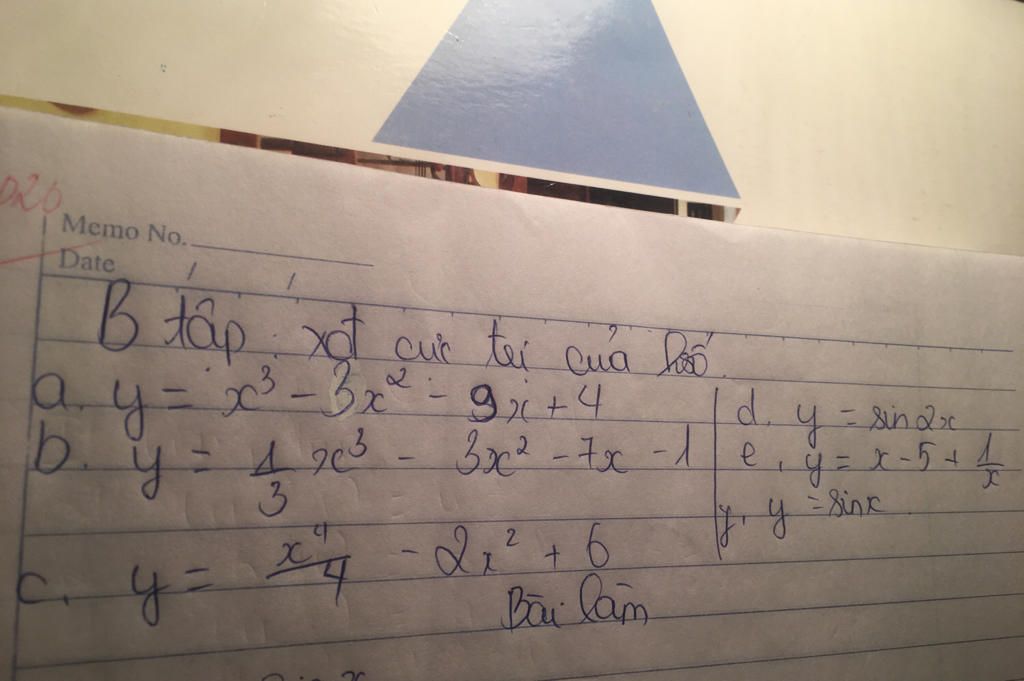 020
Memo No.
Date / /
B tập: xét cực trị của hsố.
a. y = x³ - 3x² - 9x + 4
b. y = 1/3 x³ - 3x² - 7x - 1
c. y = x⁴/4 - 2x² + 6
d. y = sin2x
e, y = x - 5 + 1/x
y, y = sinx.
Bài làm